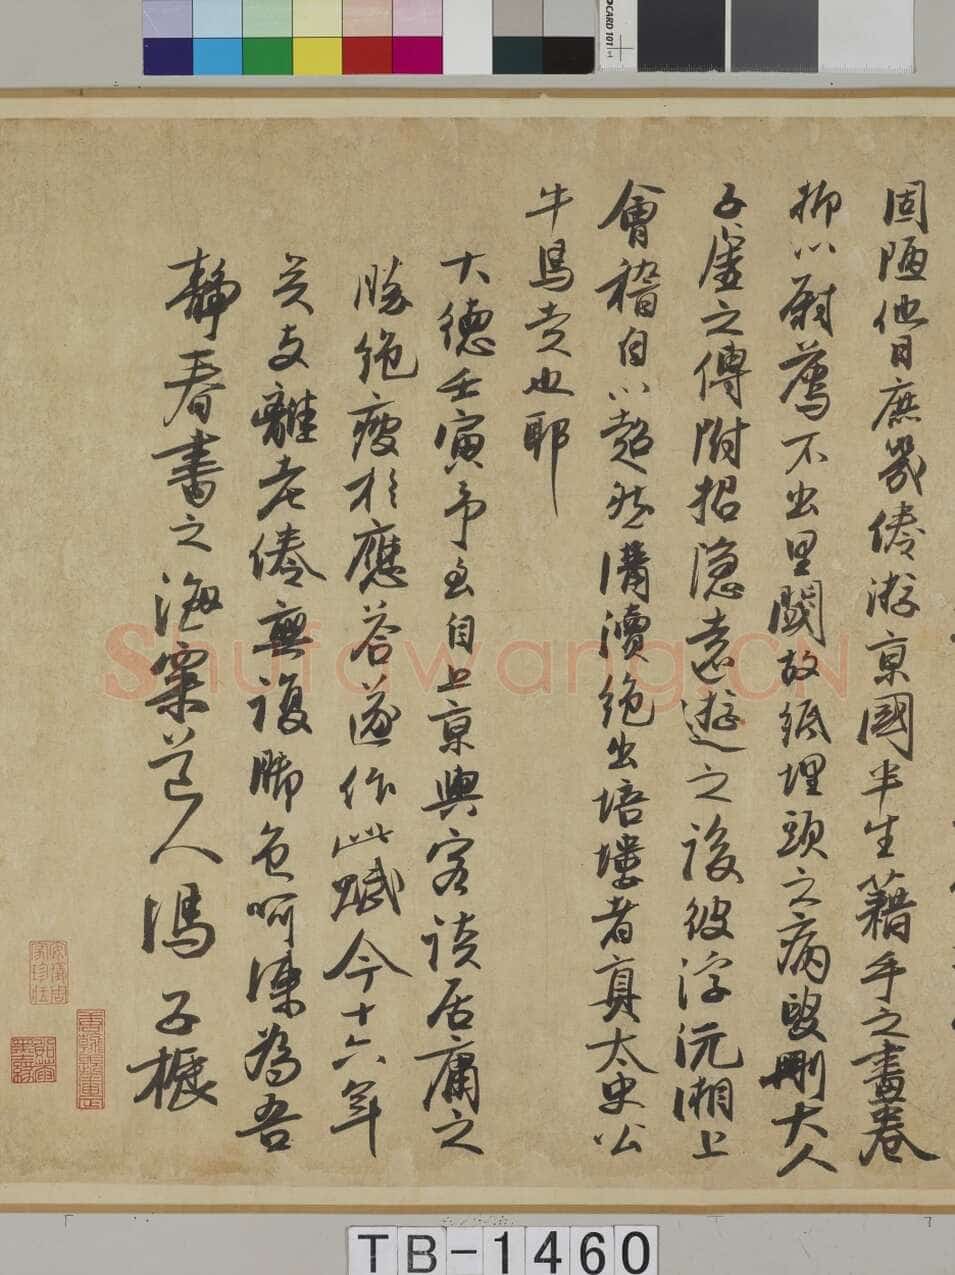 固陋他日庶幾倦游京國半生籍手之畫卷
抑以爵薦不出里閈故紙埋頭之病毉刪大人
子虛之傳附招隱遠遊之後彼浮沅湘上
會稽自以超然溝瀆絕出培塿者真太史公
牛馬走也耶
大德壬寅予自上京與客談居庸之
勝絕疲於應答遂作此賦今十六年
矣支離老倦無復腳色呵凍為吾
靜春書之海粟道人馮子振
Shufawang.CN
CARD 101
TB-1460